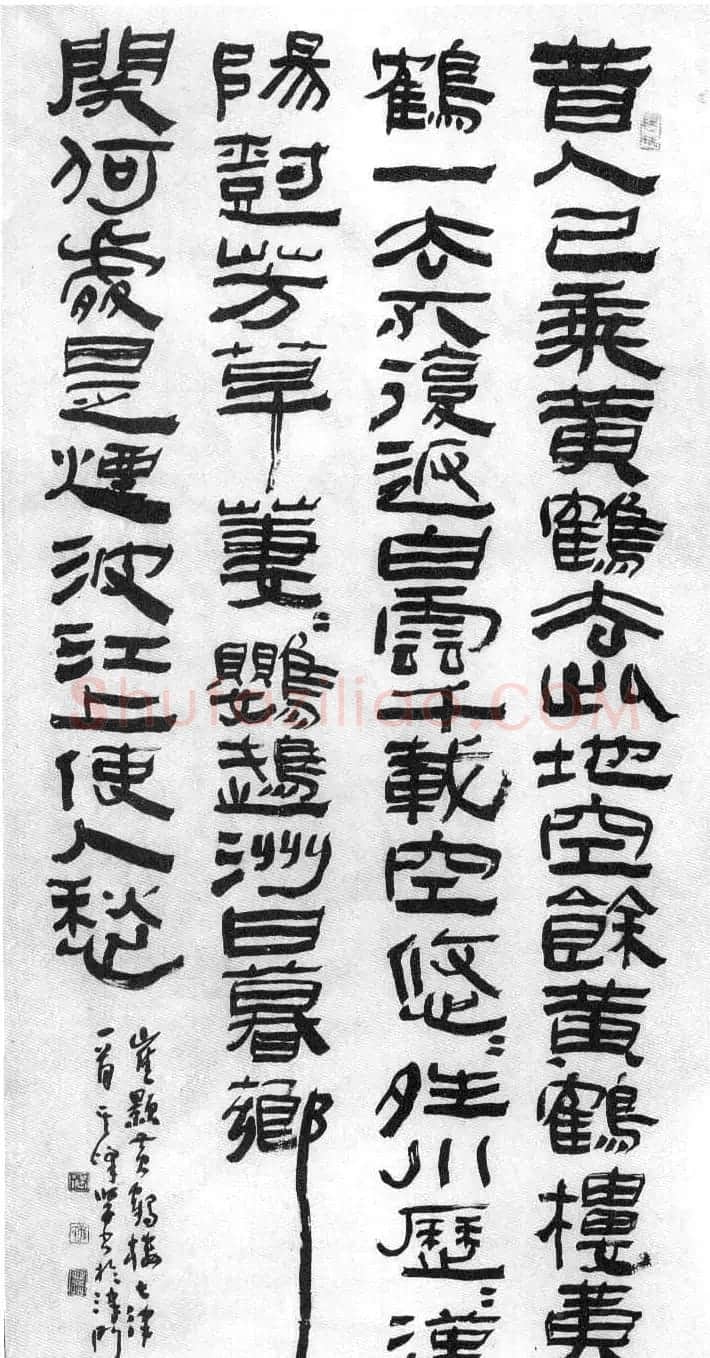 昔人已乘黄鶴去此地空餘黄鶴樓黄
鶴一去不復返白雲千載空悠〻夝川歷〻漢
陽樹芳草萋〻鸚鵡洲日暮鄉
関何處是煙波江上使人愁
崔顥黄鶴樓七律
一首其峰學書於津門
Shufaziliao.COM